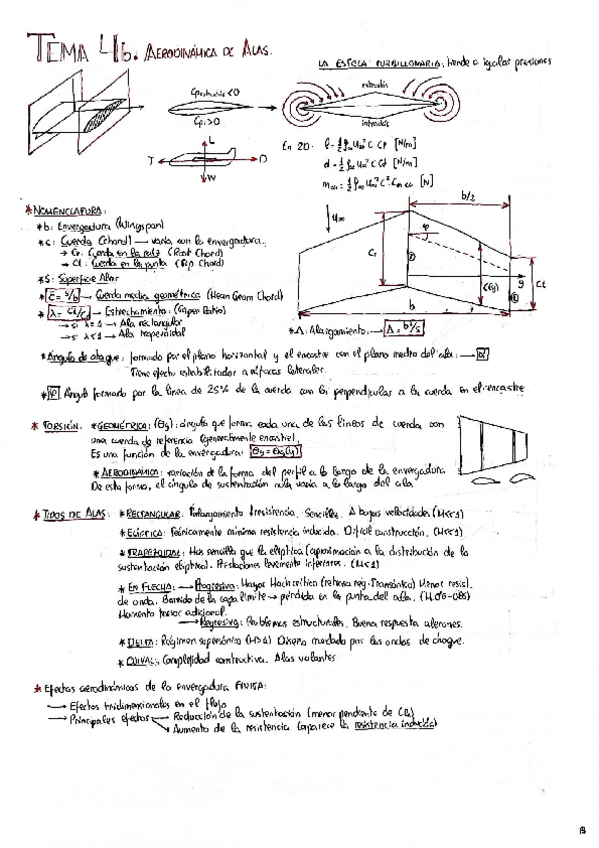 TEMA 4b. AERODINÁMICA DE ALAS.
LA ESTELA TURBILLONARIA: tiende a igualar presiones
Cp extradós <0
Cp i >0
extradós
intradós
L
T D
W
En 2D: l = ½ ρ∞ U∞² c Cl [N/m]
d = ½ ρ∞ U∞² c Cd [N/m]
[N]
b/2
U∞
φ
Cr
C(y)
y
Ct
b
* NOMENCLATURA:
* b: Envergadura (Wingspan)
* c: Cuerda (chord) → varía con la envergadura.
→ Cr: Cuerda en la raíz (Root Chord)
→ Ct: Cuerda en la punta (Tip Chord)
* S: Superficie Alar
* c̄ = S/b → Cuerda media geométrica (Mean Geom Chord)
* λ = Ct/Cr → Estrechamiento: (Taper Ratio)
→ si λ = 1 → Ala rectangular
→ si λ < 1 → Ala trapezoidal
* Λ: Alargamiento: → Λ = b²/S
* Ángulo de ataque: formado por el plano horizontal y el encastre con el plano medio del ala: → α
Tiene efecto estabilizador a efectos laterales.
* φ Ángulo formado por la línea de 25% de la cuerda con la perpendicular a la cuerda en el encastre
* TORSIÓN. * GEOMÉTRICA: (θg): ángulo que forma cada una de las líneas de cuerda con
una cuerda de referencia (generalmente encastre).
Es una función de la envergadura: θg = θg(y)
* AERODINÁMICA: variación de la forma del perfil a lo largo de la envergadura
De esta forma, el ángulo de sustentación nula varía a lo largo del ala
* TIPOS DE ALAS: * RECTANGULAR: resistencia. Sencillas. A bajas velocidades (M<<1)
* ELÍPTICA: Teóricamente mínima resistencia inducida. Difícil construcción. (M<<1)
* TRAPEZOIDAL: Más sencilla que la elíptica (aproximación a la distribución de la
sustentación elíptica). Prestaciones levemente inferiores. (M<1)
* EN FLECHA: → Progresiva: Mayor Mach crítico (retrasa reg. Transónico) Menor resist.
de onda. Barrido de la capa límite → pérdida en la punta del ala. (M 0'6-0'85)
Momento torsor adicional.
→ Regresiva: Problemas estructurales. Buena respuesta alerones.
* DELTA: Régimen supersónico (M>1) Diseño marcado por las ondas de choque.
* OJIVAL: Complejidad constructiva. Alas volantes
* Efectos aerodinámicos de la envergadura FINITA:
→ Efectos tridimensionales en el flujo
→ Principales efectos → Reducción de la sustentación (menor pendiente de CL)
→ Aumento de la resistencia (aparece la resistencia inducida)